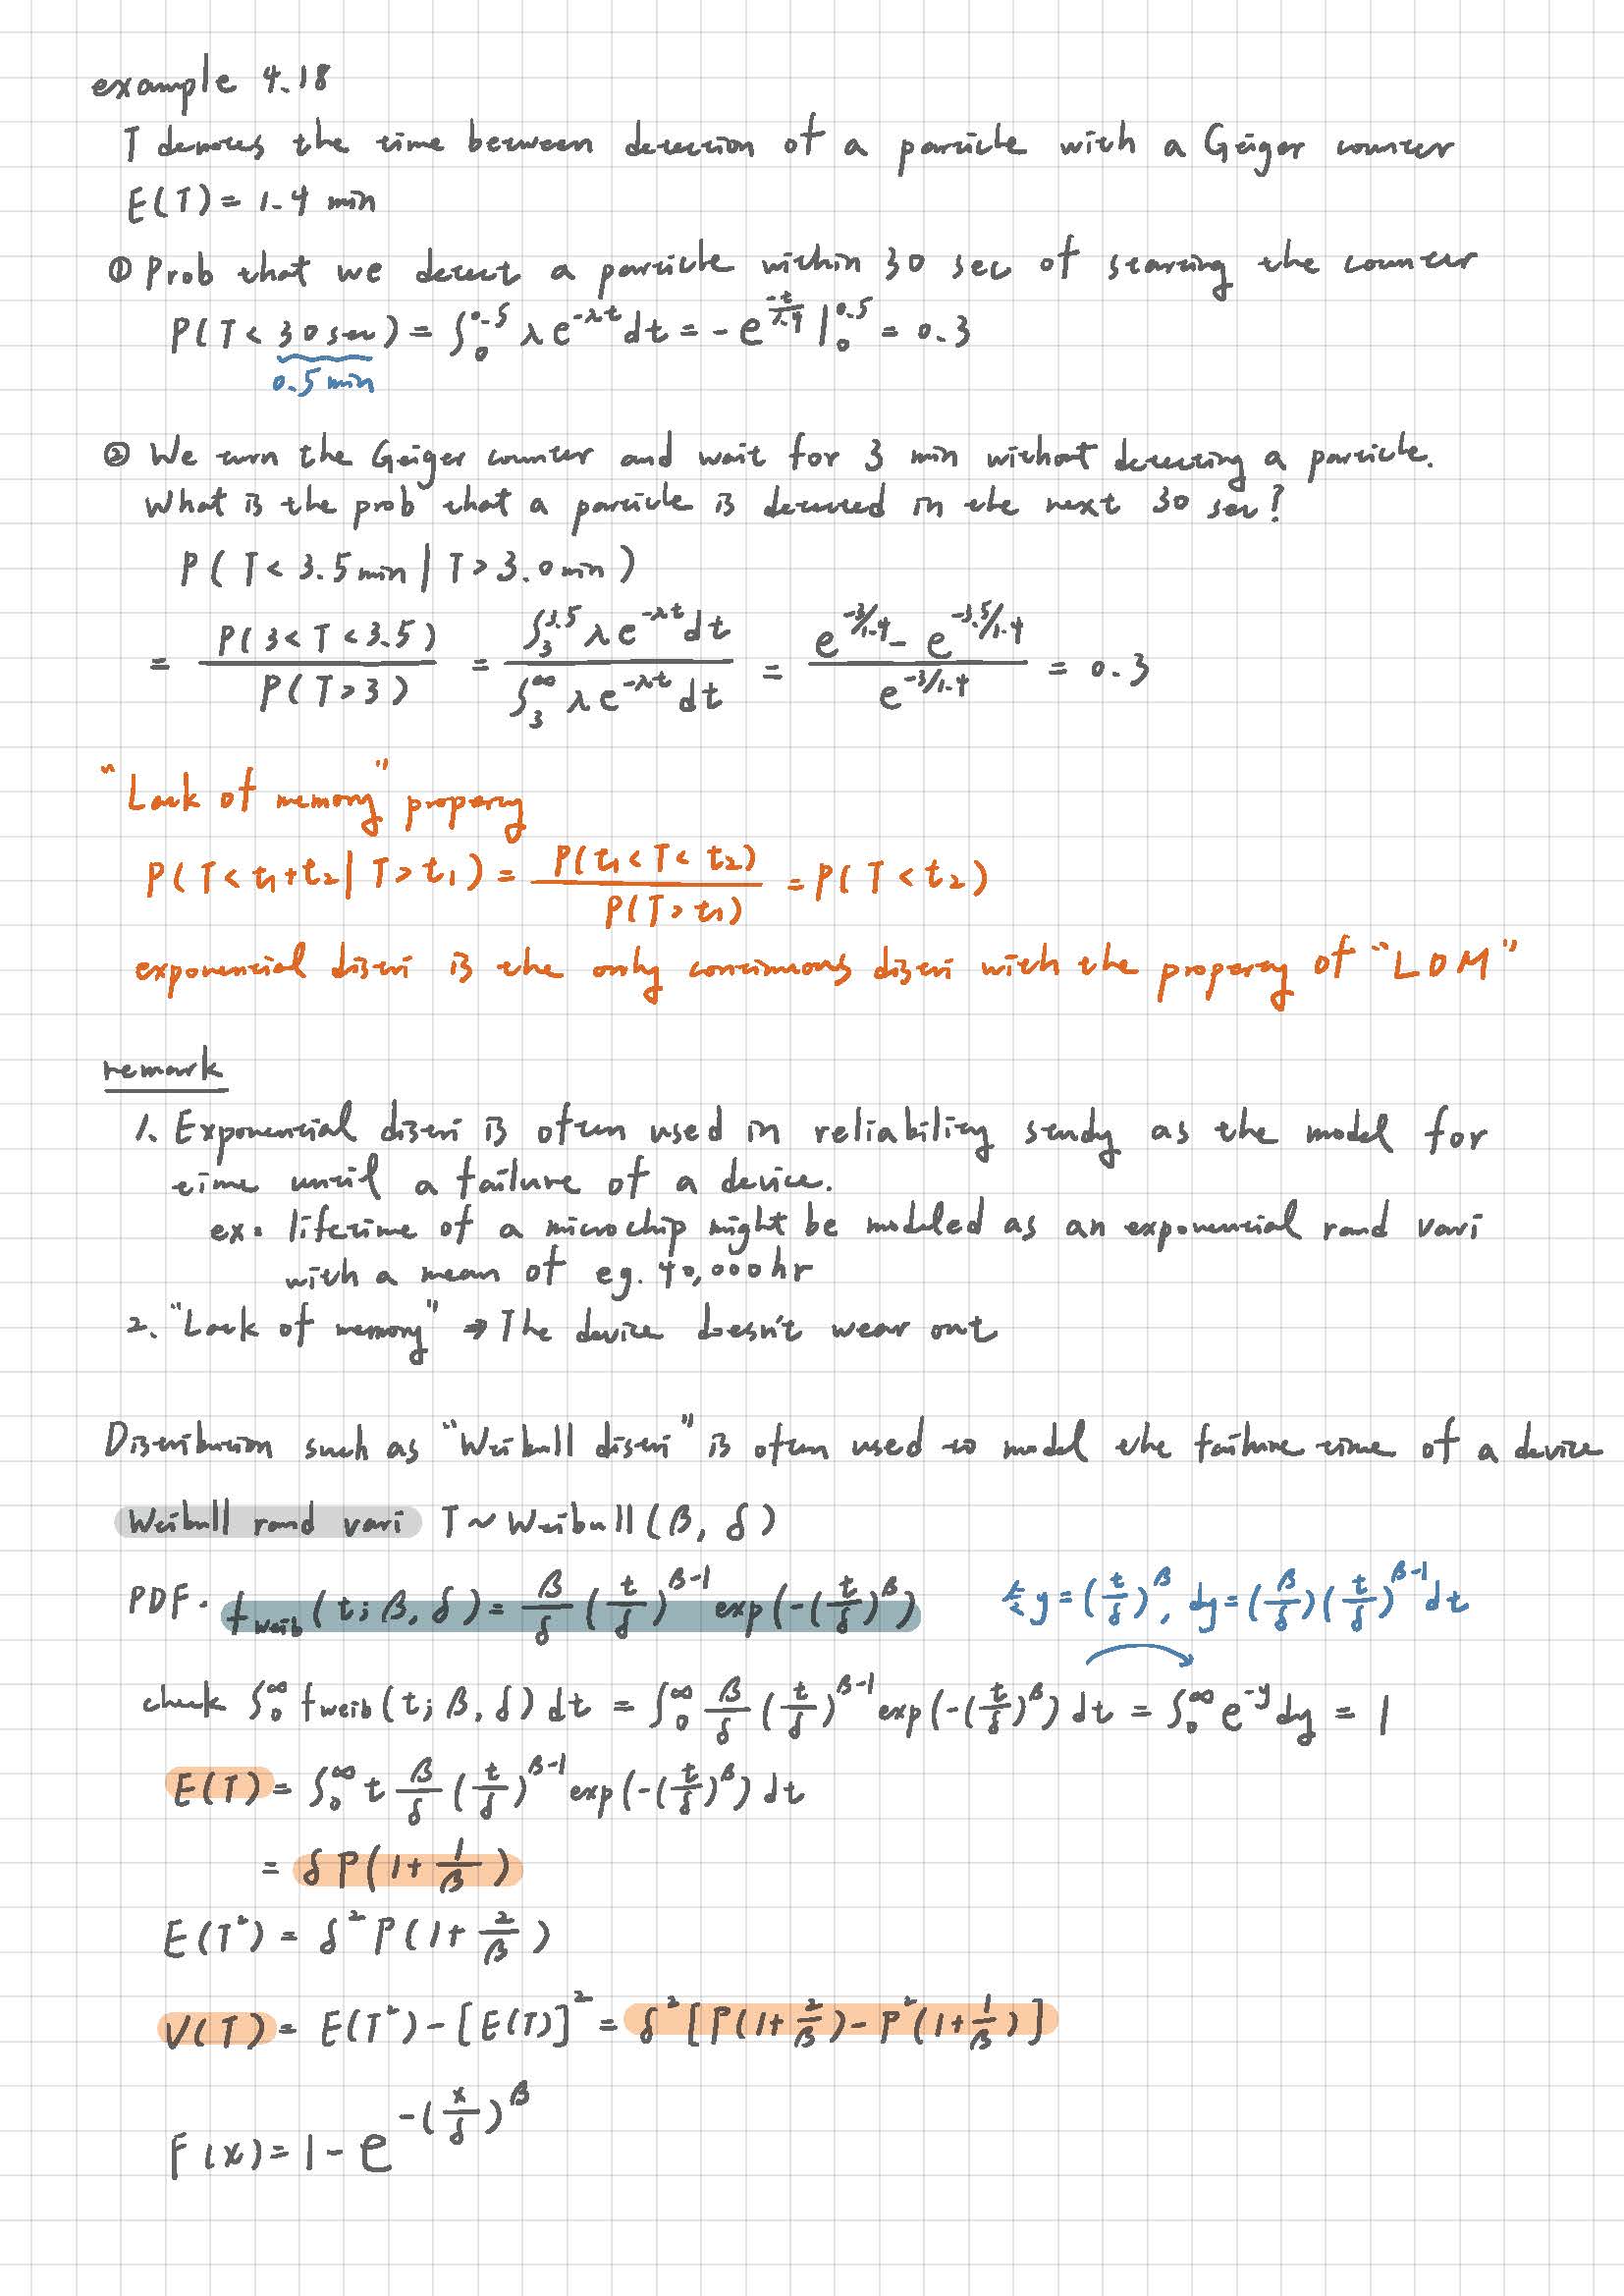 example 4.18
T denotes the time between detection of a particle with a Geiger counter
E(T) = 1.4 min
① Prob that we detect a particle within 30 sec of starting the counter
P(T < 30 sec) = ∫₀^0.5 λe^(-λt) dt = -e^(-t/1.4) |₀^0.5 = 0.3
0.5 min
② We turn the Geiger counter and wait for 3 min without detecting a particle.
What is the prob that a particle is detected in the next 30 sec?
P(T < 3.5 min | T > 3.0 min)
= P(3 < T < 3.5) / P(T > 3) = ∫₃^3.5 λe^(-λt) dt / ∫₃^∞ λe^(-λt) dt = (e^(-3/1.4) - e^(-3.5/1.4)) / e^(-3/1.4) = 0.3
"Lack of memory" property
P(T < t₁+t₂ | T > t₁) = P(t₁ < T < t₂) / P(T > t₁) = P(T < t₂)
exponential distri is the only continuous distri with the property of "LOM"
remark
1. Exponential distri is often used in reliability study as the model for
time until a failure of a device.
ex: lifetime of a microchip might be modeled as an exponential rand vari
with a mean of eg. 40,000hr
2. "Lack of memory" → The device doesn't wear out
Distribution such as "Weibull distri" is often used to model the failure time of a device
Weibull rand vari T ~ Weibull(β, δ)
PDF. f_weib(t; β, δ) = β/δ (t/δ)^(β-1) exp(-(t/δ)^β) 令y = (t/δ)^β, dy = (β/δ)(t/δ)^(β-1) dt
check ∫₀^∞ f_weib(t; β, δ) dt = ∫₀^∞ β/δ (t/δ)^(β-1) exp(-(t/δ)^β) dt = ∫₀^∞ e^(-y) dy = 1
E(T) = ∫₀^∞ t β/δ (t/δ)^(β-1) exp(-(t/δ)^β) dt
= δ Γ(1 + 1/β)
E(T²) = δ² Γ(1 + 2/β)
V(T) = E(T²) - [E(T)]² = δ² [Γ(1 + 2/β) - Γ²(1 + 1/β)]
F(x) = 1 - e^(-(x/δ)^β)